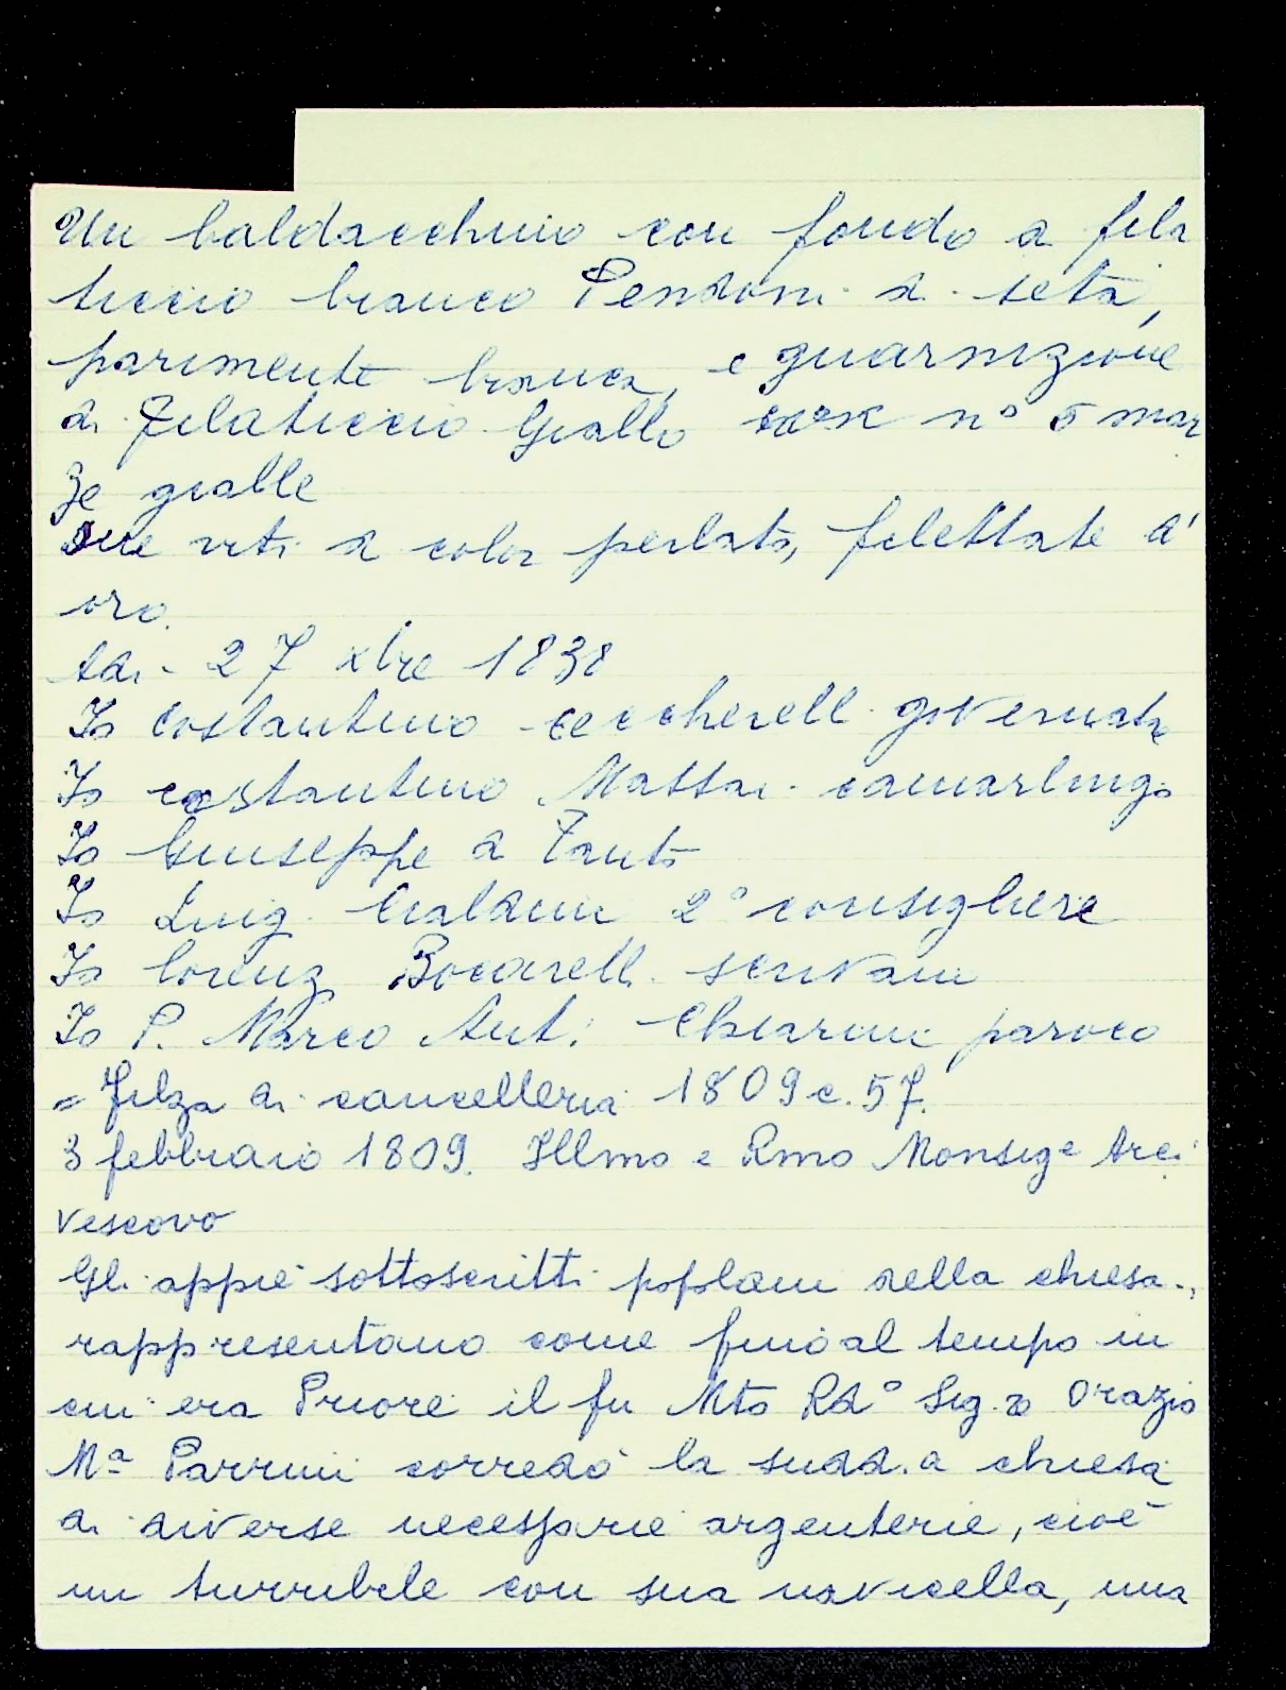 Un baldacchino con fondo di fila
ticcio bianco Pendoni di seta,
parimente bianca, e guarnizione
di Filaticcio Giallo con n° 5 maz
ze gialle
due viti di color perlato, filettate d'
oro.
Adi 27 xbre 1838
Io Costantino Ceccherelli governatre
Io Costantino Mattai camarlingo
Io Giuseppe di Zanto
Io Luigi Cialdini 2° consigliere
Io Lorenzo Bocciarelli scrivano
Io P. Marco Ant. Chiarini paroco
= Filza di cancelleria 1809 c. 57.
3 febbraio 1809. Illmo e Rmo Monsige Arci
vescovo
Gli appiè sottoscritti popolani della chiesa..,
rappresentano come fino al tempo in
cui era Priore il fu Mto Rd° Sig.re Orazio
Mª Parrini corredò la sudd.a chiesa
di diverse necessarie argenterie, cioè
un turribile con sua navicella, una